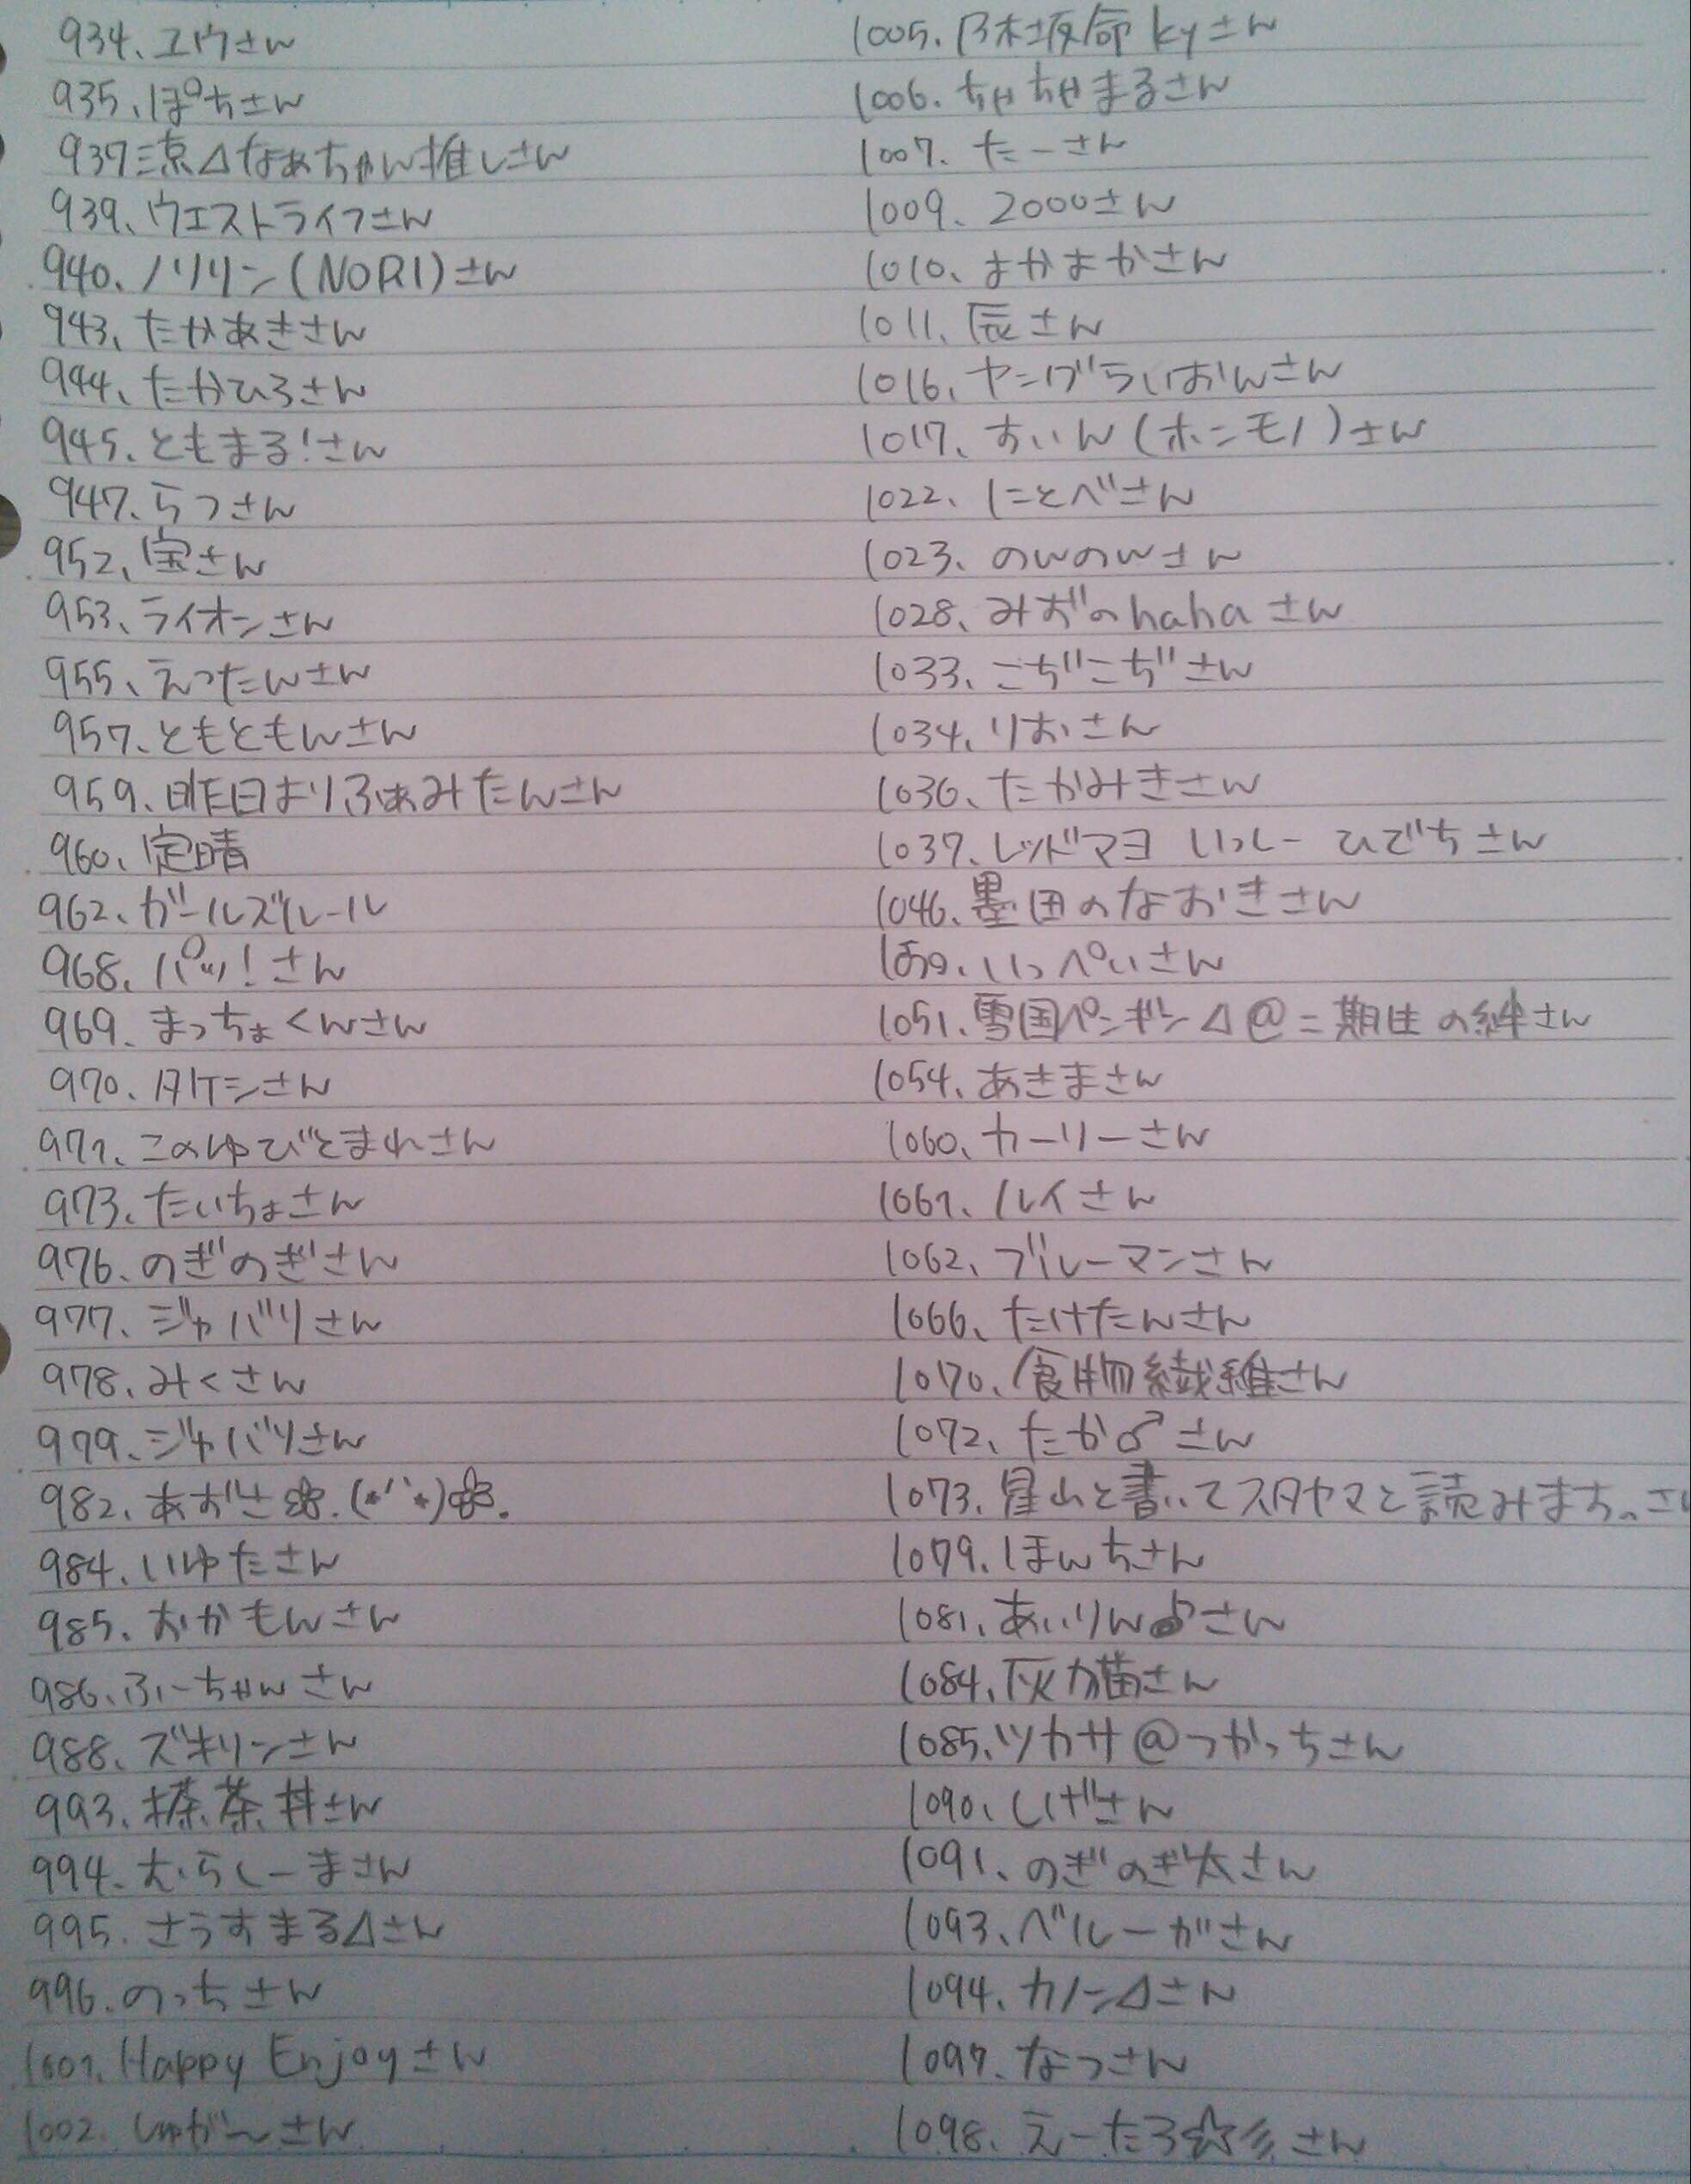 934、ユウさん
935、ぽちさん
937三涼⊿なぁちゃん推しさん
939、ウエストライフさん
940、ノリリン(NORI)さん
943、たかあきさん
944、たかひろさん
945、ともまる!さん
947、らっさん
952、宝さん
953、ライオンさん
955、えったんさん
957、ともともんさん
959、昨日まりふぁみたんさん
960、定晴
962、ガールズルール
968、パッ!さん
969、まっちょくんさん
970、タケシさん
971、このゆびとまれさん
973、たいちょさん
976、のぎのぎさん
977、ジャバリさん
978、みくさん
979、ジャバリさん
982、あおさ
984、いゆたさん
985、おかもんさん
986、ふーちゃんさん
988、ズキリンさん
993、榛茶丼さん
994、むらしーまさん
995、さうすまる⊿さん
996、のっちさん
1001、Happy Enjoyさん
1002、しゅがーさん
1005、乃木坂命kyさん
1006、ちゃちゃまるさん
1007、たーさん
1009、2000さん
1010、まかまかさん
1011、辰さん
1016、ヤングらいおんさん
1017、すいん(ホンモノ)さん
1022、にとべさん
1023、のんのんさん
1028、みおのhahaさん
1033、こぢこぢさん
1034、りおさん
1036、たかみきさん
1037、レッドマヨ いっしー ひでちさん
1046、墨田のなおきさん
いっぺいさん
1051、雪国ペンギン⊿@二期生の絆さん
1054、あさまさん
1060、カーリーさん
1061、ルイさん
1062、ブルーマンさん
1066、たけたんさん
1070、食物繊維さん
1072、たか♂さん
1073、星山と書いてスタヤマと読みます。さん
1079、ほんちさん
1081、あいりん♂さん
1084、灰カ猫さん
1085、ツカサ@つかっちさん
1090、しげさん
1091、のぎのぎ太さん
1093、ベルーガさん
1094、カノン⊿さん
1097、なっさん
1098、えーたろ☆彡さん